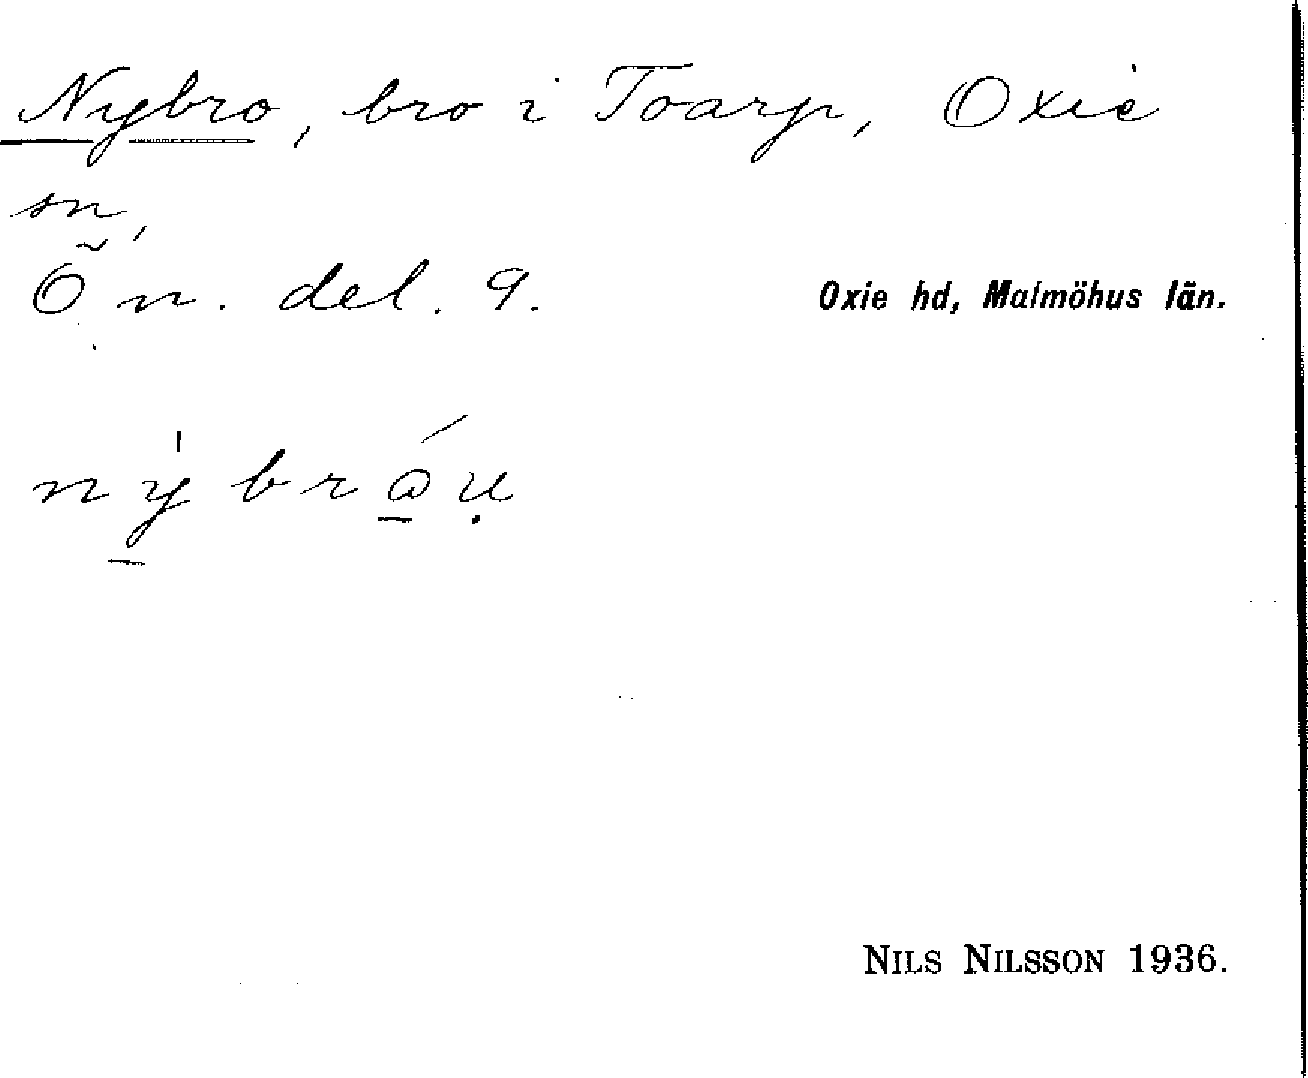 Nybro, bro i Toarp, Oxie
sn,
Ö n. del. 9.
Oxie hd, Malmöhus län.
NILS NILSSON 1936.